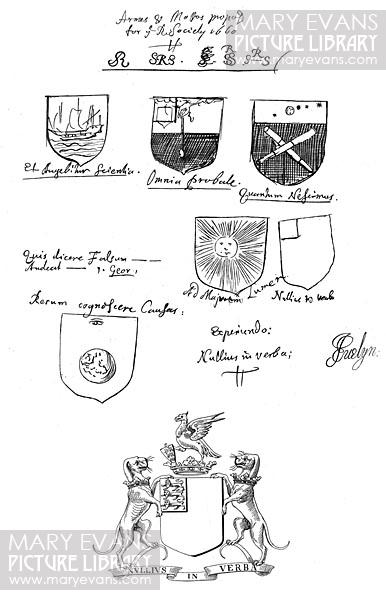 Armes & Motos propos'd
for ye R. Society 1660
MARY EVANS
PICTURE LIBRARY
www.maryevans.com
SRS.
Et Augebitur Scientia.
Omnia probate.
Quantum Nescimus.
Quis dicere Falsum
Audeat 1. Geor:
Ad Majorem Lumen
Nullius in verba
Rerum cognoscere Causas:
Experiendo:
Nullius in verba;
Evelyn:
NULLIUS IN VERBA
MARY EVANS
PICTURE LIBRARY
www.maryevans.com